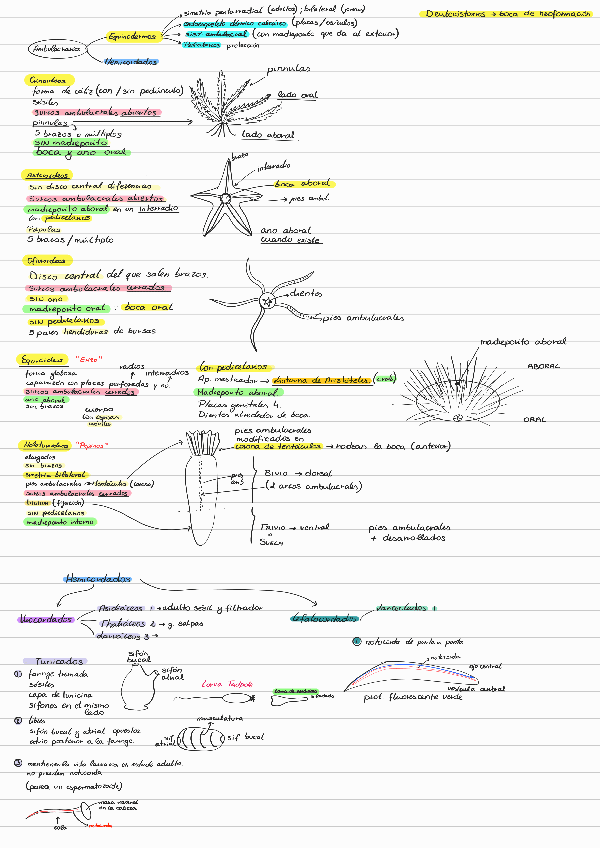 Deuteróstomos → boca de neoformación
Ambulacrarios
Equinodermos
simetría pentarradial (adultos); bilateral (larvas)
endoesqueleto dérmico calcáreo (placas/osículos)
sist ambulacral (con madreporito que da al exterior)
Hemicordados
Crinoideos
forma de cáliz (con / sin pedúnculo)
sésiles
surcos ambulacrales abiertos
pínnulas
5 brazos o múltiplos
SIN madreporito
boca y ano oral
pínnulas
lado oral
lado aboral
Asteroideos
sin disco central diferenciao
surcos ambulacrales abiertos
madreporito aboral en un interradio
con pedicelarios
Pápulas
5 brazos / múltiplo
brazo
interradio
boca aboral
→ pies ambul.
ano aboral
cuando existe
Ofiuroideos
Disco central del que salen brazos.
surcos ambulacrales cerrados
sin ano
madreporito oral. boca oral
sin pedicelarios
5 pares hendiduras de bursas
dientes
pies ambulacrales
Equinoideos "Erizo"
forma globosa
caparazón con placas perforadas y no
surcos ambulacrales cerrados
ano aboral
sin brazos
radios
interradios
cuerpo
con espinas
móviles
Con pedicelarios
Ap. masticador → Linterna de Aristóteles (oral)
Madreporito aboral
Placas genitales 4.
Dientes alrededor de boca.
madreporito aboral
ABORAL
ORAL
Holoturoideos "Pepinos"
alargados
sin brazos
simetría bilateral
pies ambulacrales → tentáculos (boca)
surcos ambulacrales cerrados
trivium (fijación)
sin pedicelarios
madreporito interno
pies ambulacrales
modificados en
corona de tentáculos → rodean la boca (anterior)
pies
amb
Bivio → dorsal
(2 áreas ambulacrales)
Trivio → ventral
Suela
pies ambulacrales
+ desarrollados
Hemicordados
Urocordados
Ascidiáceos 1 → adulto sésil y filtrador
Thaliáceos 2 → g. salpas
Larváceos 3 →
Cefalocordados
Vertebrados 1
notocorda de punta a punta
Tunicados
① faringe tremada
sésiles
capa de tunicina
sifones en el mismo
lado
sifón
bucal
sifón
atrial
Larva
notocorda
prot fluorescente verde
② libres
sifón bucal y atrial opuestos
atrio posterior a la faringe.
musculatura
sif
atrial
sif bucal
③ mantienen la vida larvaria en estado adulto.
no pierden notocorda
(parece un espermatozoide)
cola
notocorda